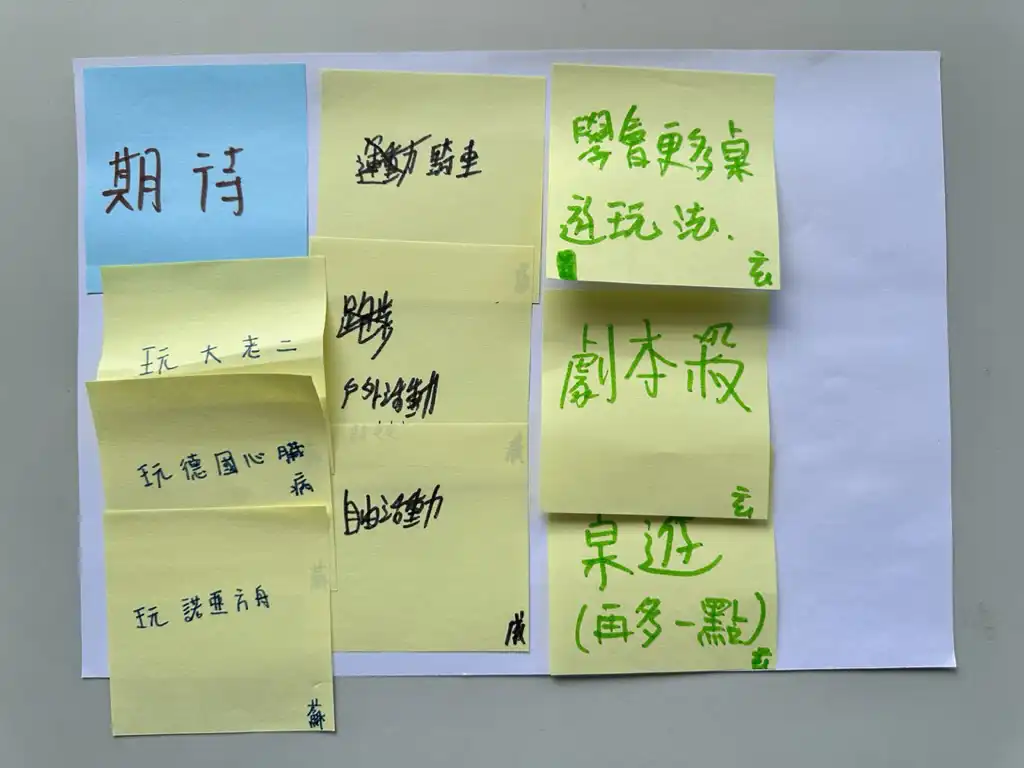 期待
玩大老二
玩德國心臟
病
玩諾亜方舟
蘇
運動騎車
跑步
戶外活動
自由活動
學會更多桌
遊玩法.
玄
劇本殺
玄
桌遊
(再多一點)
玄